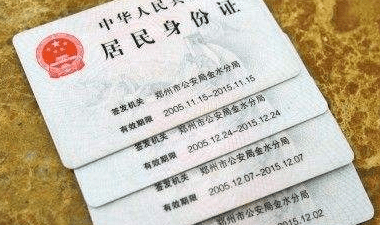 中华人民共
居民身份证
签发机关 郑州市公安局金水分局
有效期限 2005.11.15-2015.11.15
签发机关 郑州市公安局金水分局
有效期限 2005.12.24-2015.12.24
签发机关 郑州市公安局金水分局
有效期限 2005.12.07-2015.12.07
签发机关 郑州市公安局金水分局
2015.12.02